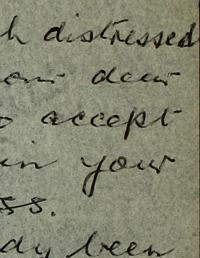 h distressed
our dear
o accept
in your
ss.
dy been